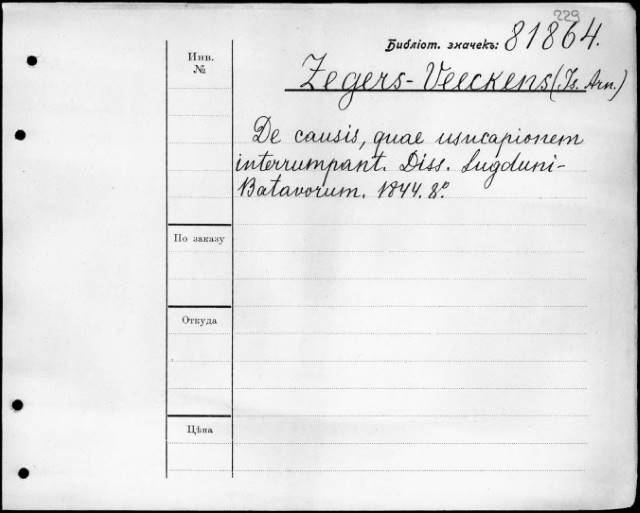 229
Библіот. значекъ: 81864.
Инв.
№
Zegers-Veeckens (Is. Arn.)
De causis, quae usucapionem
interrumpant. Diss. Lugduni-
Batavorum. 1844. 8º.
По заказу
Откуда
Цѣна